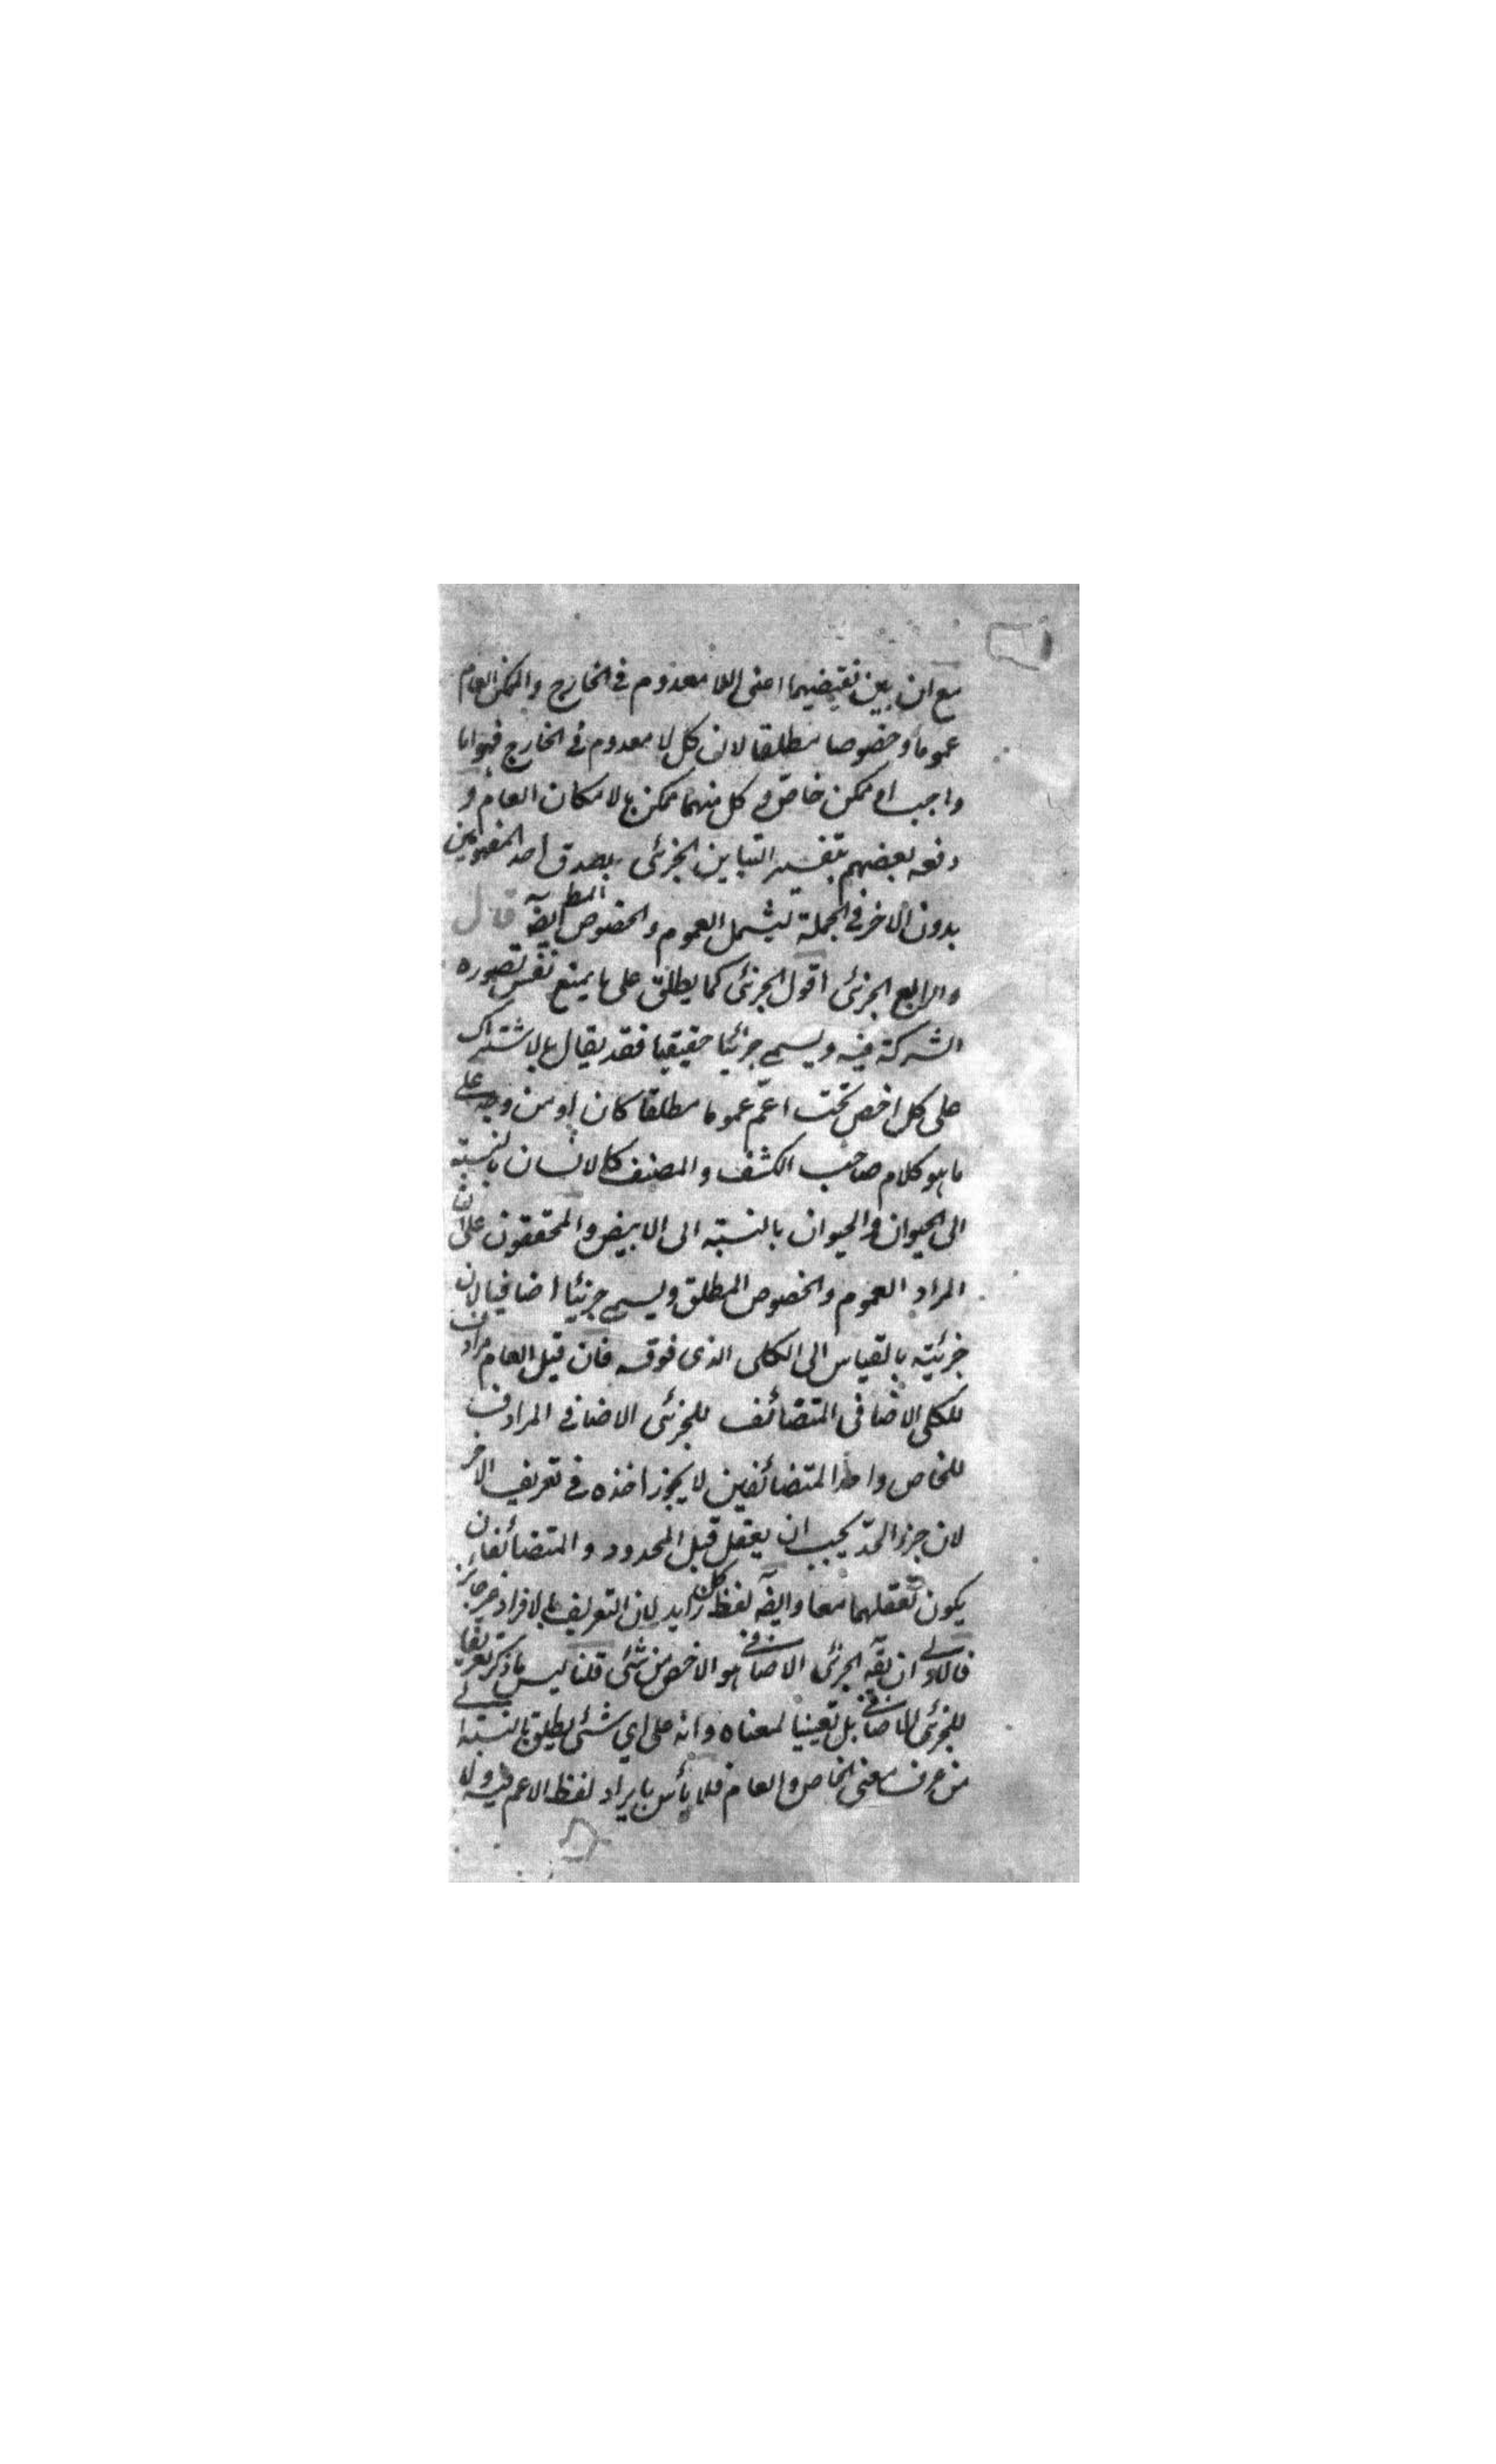 مع ان بين نقيضيهما اعنى اللا معدوم في الخارج والممكن العام
عموما وخصوصا مطلقا لان كل لا معدوم في الخارج فهو اما
واجب او ممكن خاص و كل منهما ممكن بالامكان العام و
دفعه بعضهم بتفسير التباين الجزئى بصدق احد المفهومين
بدون الاخر في الجملة ليشمل العموم والخصوص المط ايضه قال
والرابع الجزئى اقول الجزئى كما يطلق على ما يمنع نفس تصوره
الشركة فيه ويسمى جزئيا حقيقيا فقد يقال بالاشتراك
على كل اخص تحت اعم عموما مطلقا كان او من وجه على
ما هو كلام صاحب الكشف والمصنف كالانسان بالنسبة
الى الحيوان والحيوان بالنسبة الى الابيض والمحققون على ان
المراد العموم والخصوص المطلق ويسمى جزئيا اضافيا لان
جزئيته بالقياس الى الكلى الذى فوقه فان قيل العام مرادف
للكلى الاضافى المتضائف للجزئى الاضافى المرادف
للخاص واحد المتضائفين لا يجوز اخذه في تعريف الاخر
لان جزء الحد يجب ان يعقل قبل المحدود والمتضائفان
يكون تعقلهما معا وايضه لفظ كل زايد لان التعريف بالافراد غير جائز
فالاولى ان يقه الجزئى الاضافى هو الاخص من شئ قلنا ليس ما ذكر تعريفا
للجزئى الاضافى بل تعيينا لمعناه وانه على اي شئ يطلق بالنسبة الى
من عرف معنى الخاص والعام فلا بأس بايراد لفظ الاعم فيه ولا